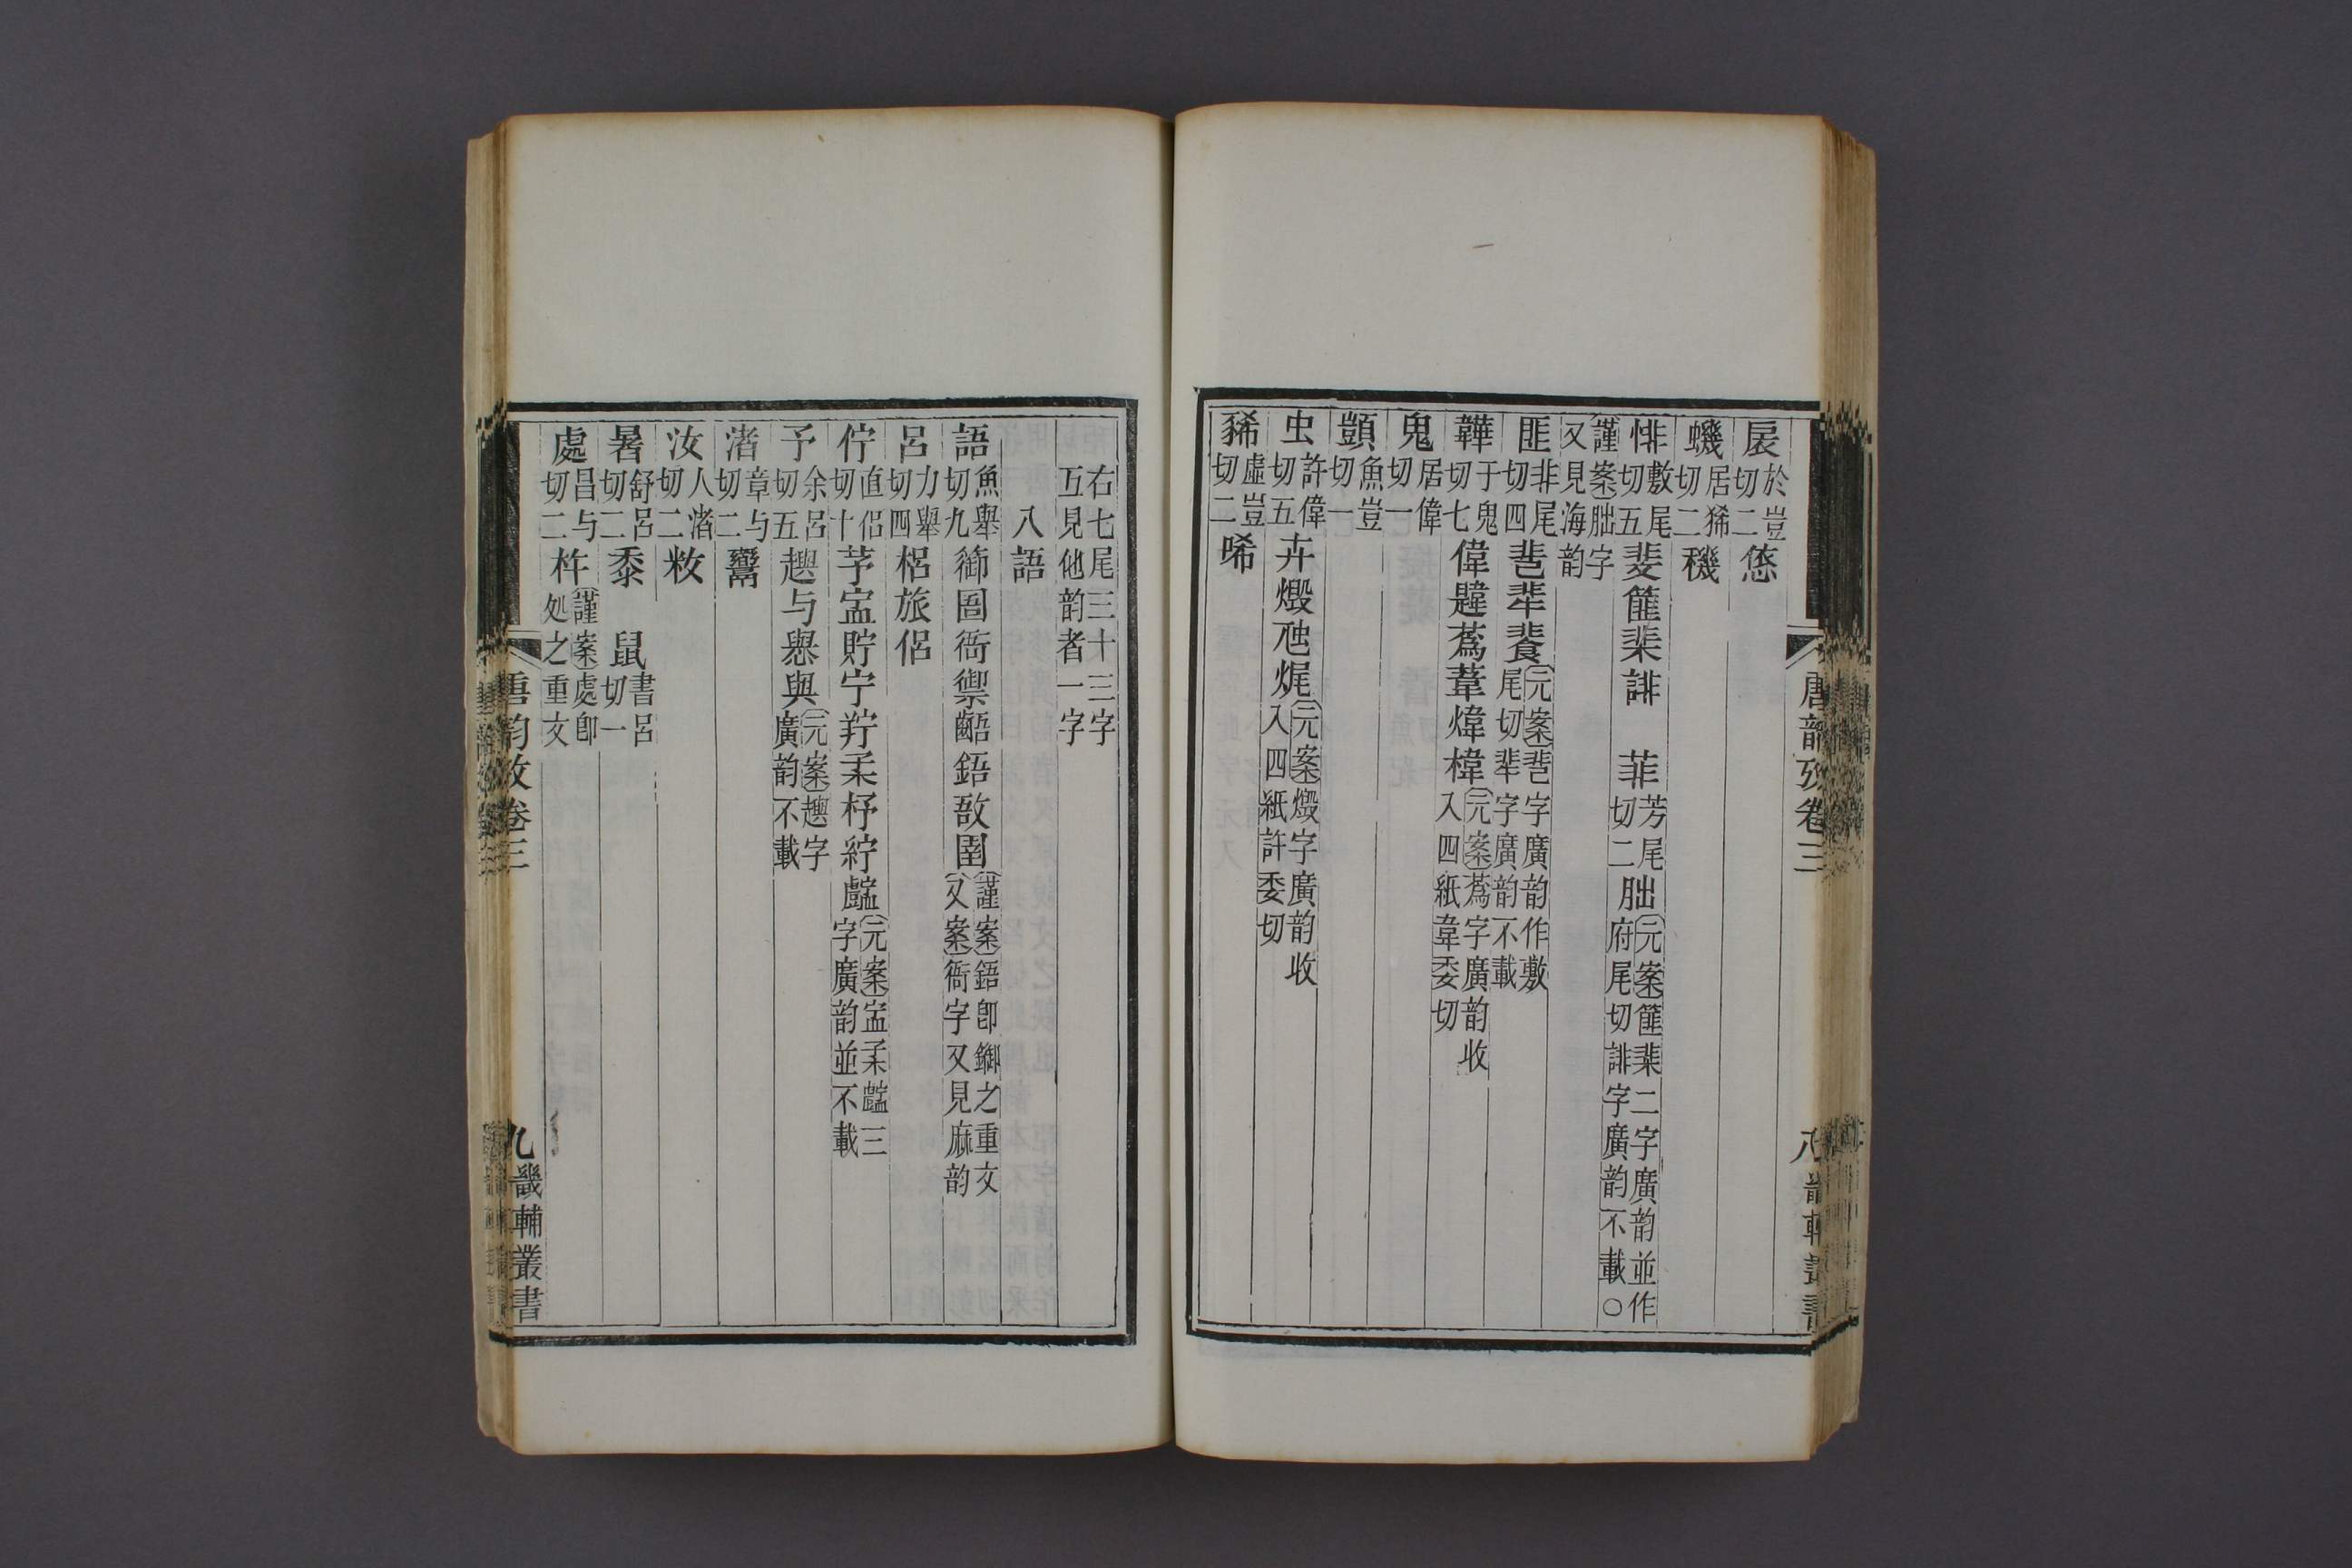 扆於豈切二㥋
蟣居狶切二穖
悱敷尾切五斐篚棐誹 菲芳尾切二朏元案篚棐二字廣韵並作府尾切誹字廣韵不載○
謹案朏字又見海韵
匪非尾切四𧧭辈餥元案𧧭字廣韵作敷尾切辈字廣韵不載
韡于鬼切七偉韙蔿葦煒椲元案蔿字廣韵收入四紙韋委切
鬼居偉切一
顗魚豈切一
虫許偉切五卉燬虺焜元案燬字廣韵收入四紙許委切
豨虛豈切二唏
唐韵攷卷三
八
畿輔叢書
右七尾三十三字
互見他韵者一字
八語
語魚舉切九籞圄衙禦齬鋙敔圉謹案鋙即鋤之重文又案衙字又見麻韵
呂力舉切四梠旅侶
佇直侶切十芧㝉貯宁羜柔杼紵𪉖元案㝉柔𪉖三字廣韵並不載
予余呂切五趣与㦛與元案趣字廣韵不載
渚章与切二䰞
汝人渚切二籹
暑舒呂切二黍 鼠書呂切一
處昌与切二杵謹案處即処之重文
唐韵攷卷三
九
畿輔叢書